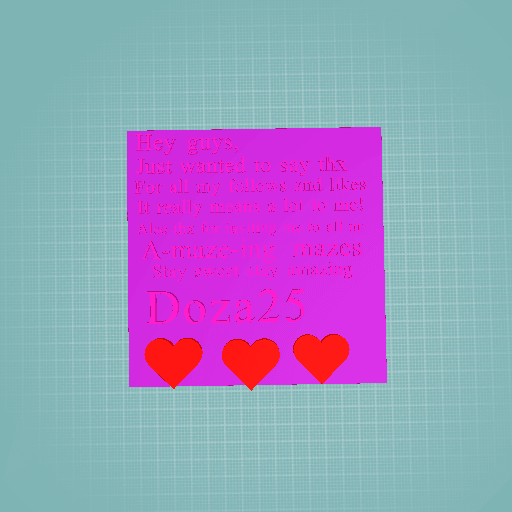 Hey guys,
Just wanted to say thx
For all my follows and likes
It really means a lot to me!
Also thx for
A-maze-ing mazes
Stay sweet stay amazing
Doza25